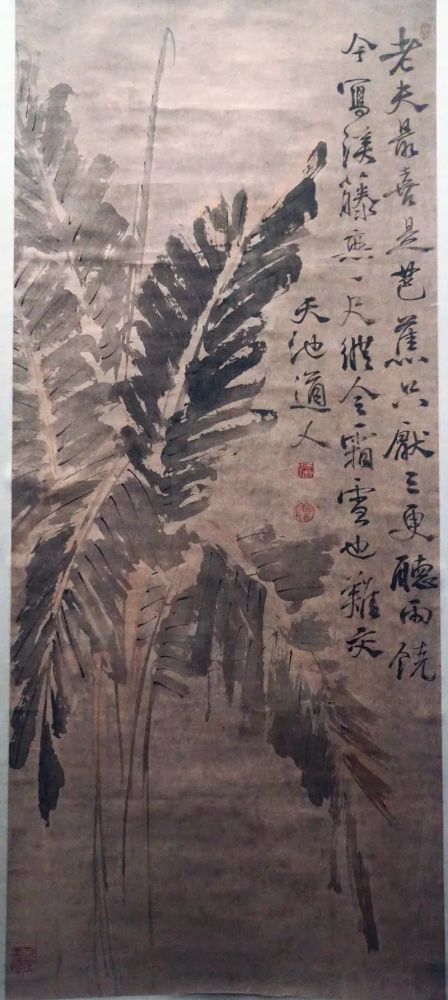 老夫最喜是芭蕉只厭三更聽雨饒
今寫溪籐一尺縱令霜雪也難交
天池道人